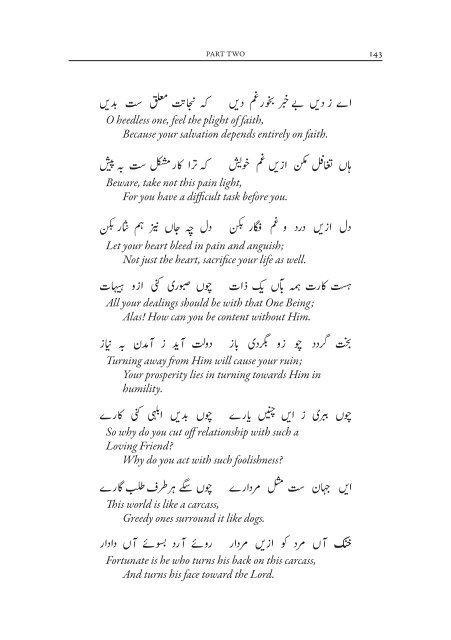 PART TWO 143
اے ز دیں بے خبر بخور غم دیں کہ نجاتت معلق ست بدیں
O heedless one, feel the plight of faith,
Because your salvation depends entirely on faith.
ہاں تغافل مکن ازیں غم خویش کہ ترا کار مشکل ست بہ پیش
Beware, take not this pain light,
For you have a difficult task before you.
دل ازیں درد و غم فگار بکن دل چہ جاں نیز ہم نثار بکن
Let your heart bleed in pain and anguish;
Not just the heart, sacrifice your life as well.
ہست کارت ہمہ بآں یک ذات چوں صبوری کنی ازو ہیہات
All your dealings should be with that One Being;
Alas! How can you be content without Him.
بخت گردد چو زو بگردی باز دولت آید ز آمدن بہ نیاز
Turning away from Him will cause your ruin;
Your prosperity lies in turning towards Him in
humility.
چوں ببری ز ایں چنیں یارے چوں بدیں ابلہی کنی کارے
So why do you cut off relationship with such a
Loving Friend?
Why do you act with such foolishness?
ایں جہان ست مثل مردارے چوں سگے ہر طرف طلب گارے
This world is like a carcass,
Greedy ones surround it like dogs.
خنک آں مرد کو ازیں مردار روئے آرد بسوئے آں دادار
Fortunate is he who turns his back on this carcass,
And turns his face toward the Lord.